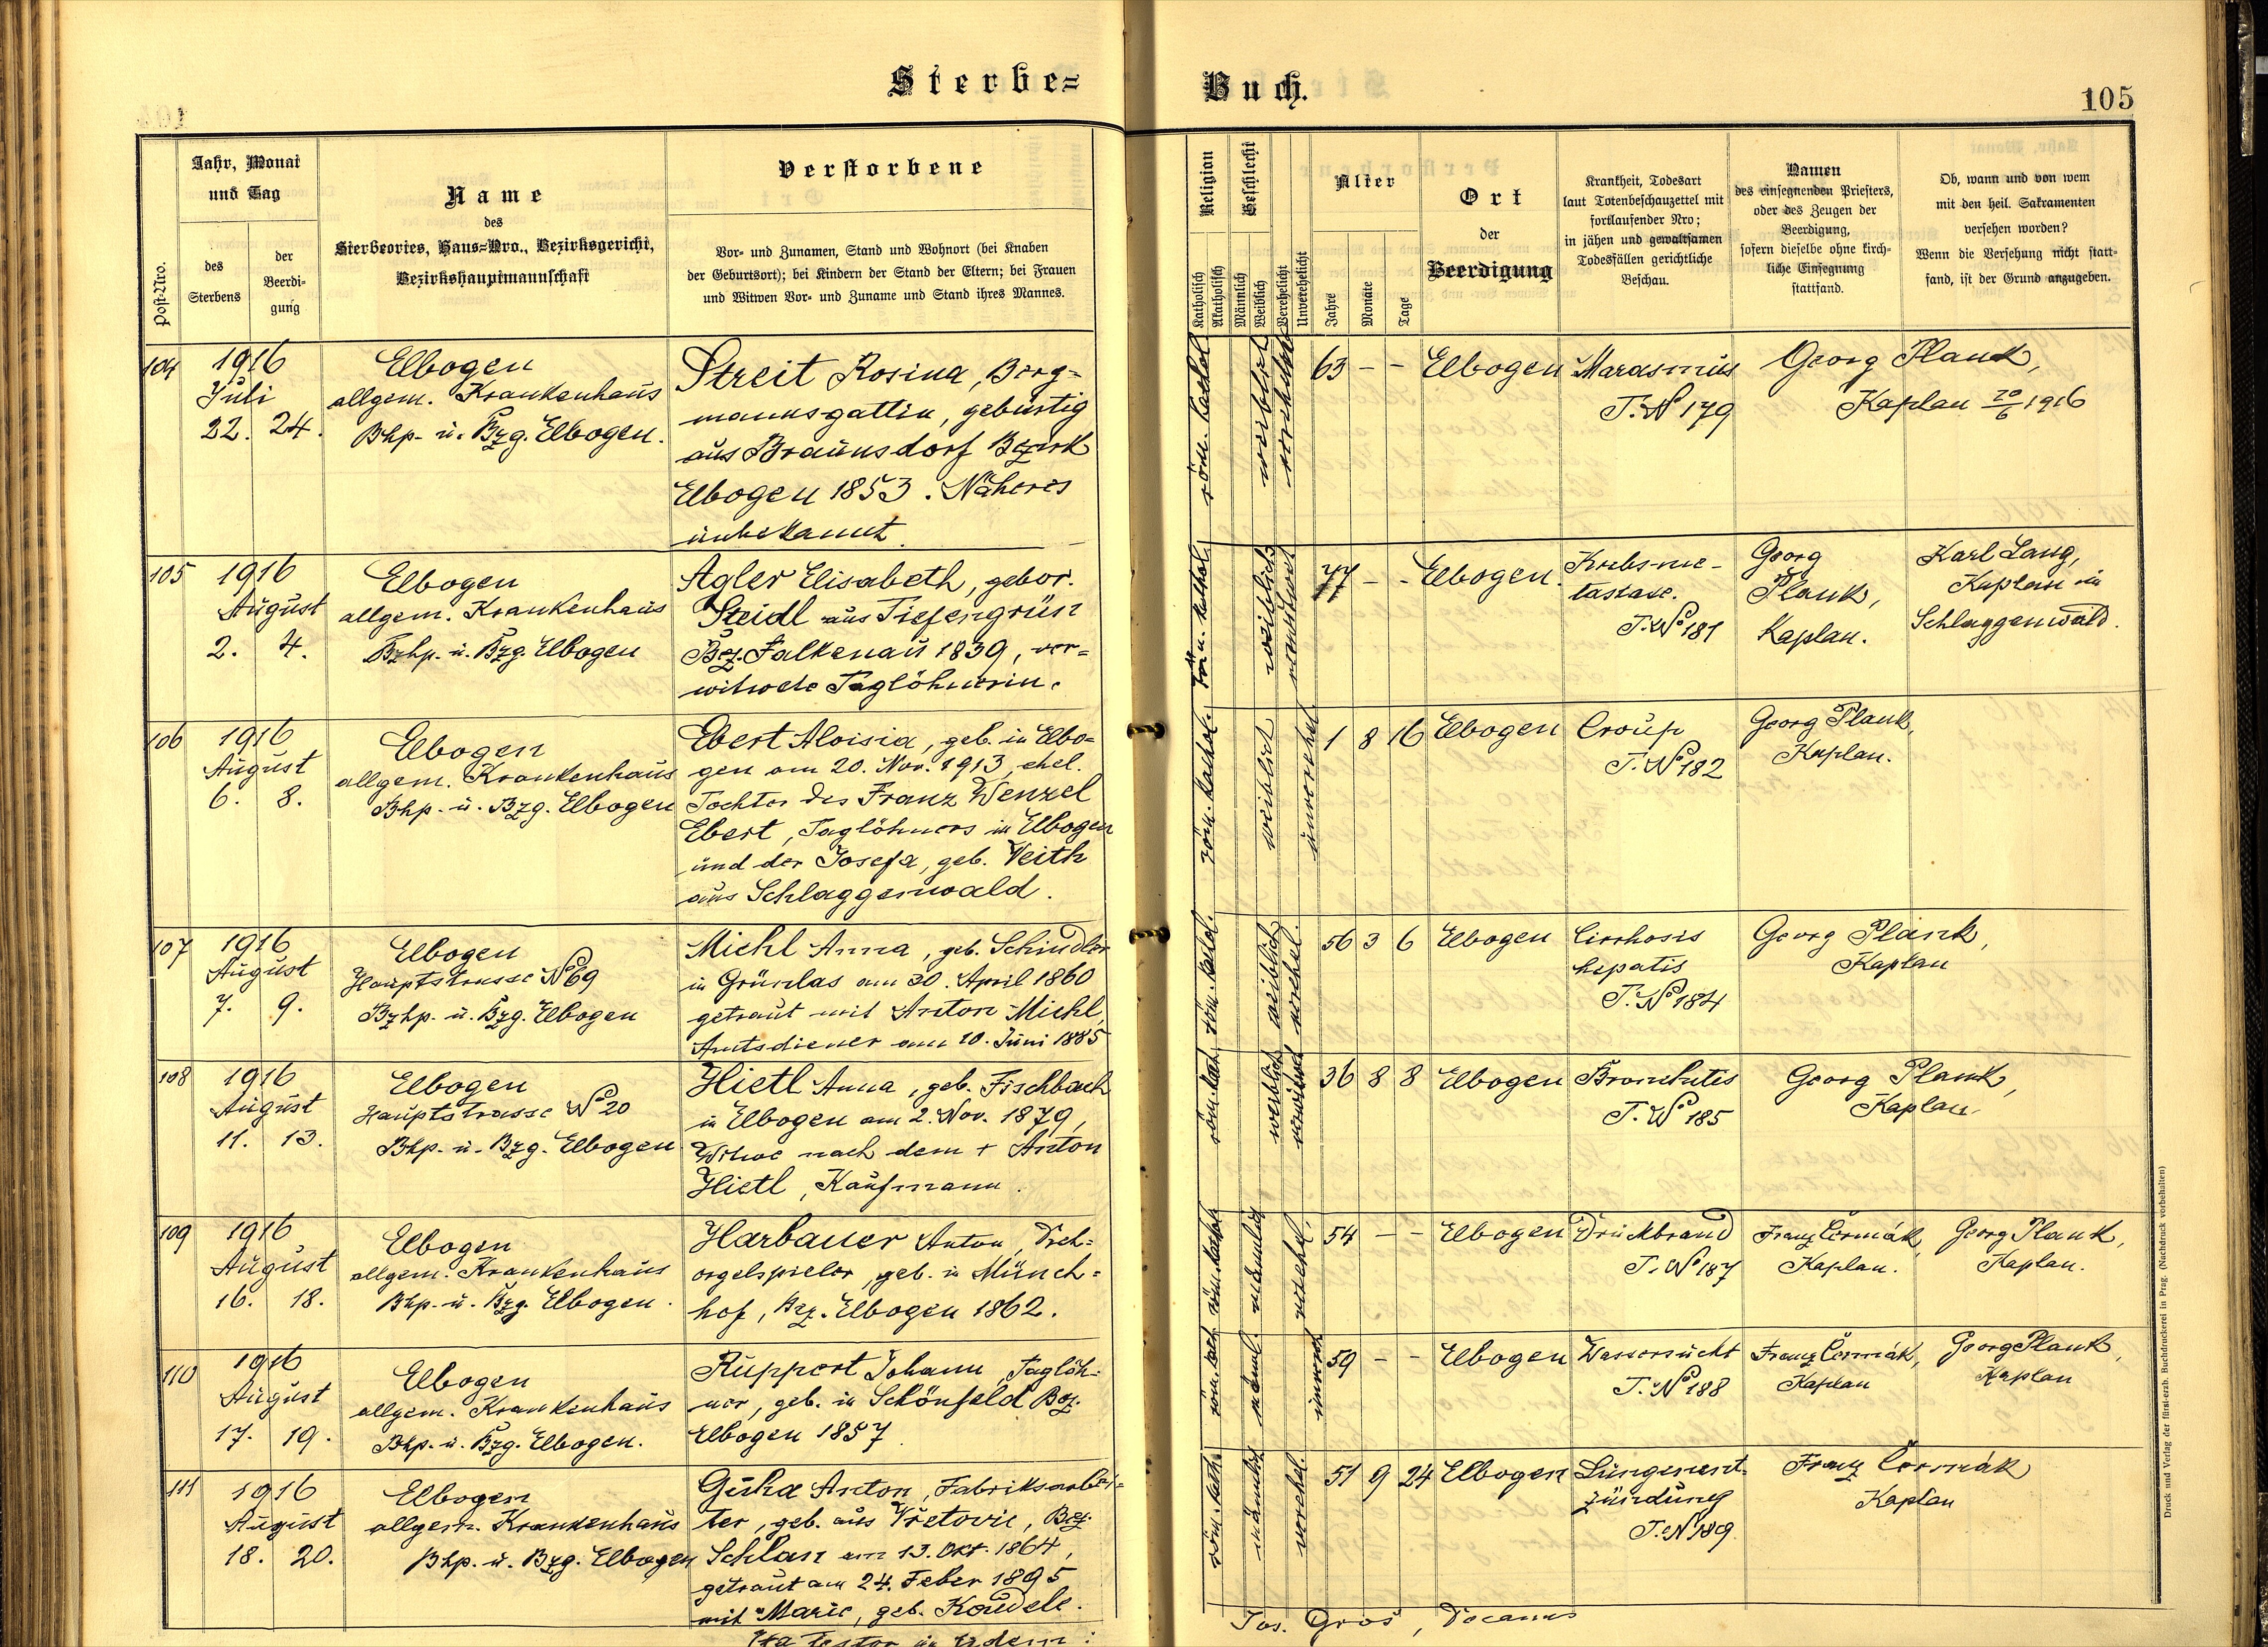 Sterbe=
Buch.
105
Post-Nro.
Jahr, Monat
und Tag
des
Sterbens
der
Beerdi-
gung
Name
des
Sterbeortes, Haus=Nro., Bezirksgericht,
Bezirkshauptmannschaft
Verstorbene
Vor= und Zunamen, Stand und Wohnort (bei Knaben
der Geburtsort); bei Kindern der Stand der Eltern; bei Frauen
und Witwen Vor= und Zuname und Stand ihres Mannes.
Religion
Katholisch
Akatholisch
Geschlecht
Männlich
Weiblich
Verehelicht
Unverehelicht
Alter
Jahre
Monate
Tage
Ort
der
Beerdigung
Krankheit, Todesart
laut Totenbeschauzettel mit
fortlaufender Nro;
in jähen und gewaltsamen
Todesfällen gerichtliche
Beschau.
Namen
des einsegnenden Priesters,
oder des Zeugen der
Beerdigung,
sofern dieselbe ohne kirch-
liche Einsegnung
stattfand.
Ob, wann und von wem
mit den heil. Sakramenten
versehen worden?
Wenn die Versehung nicht statt-
fand, ist der Grund anzugeben.
104
1916
Juli
22. 24.
Elbogen
allgem. Krankenhaus
Bhp- u. Bzg. Elbogen.
Streit Rosina, Berg=
mannsgattin, gebürtig
aus Braunsdorf Bezirk
Elbogen 1853. Näheres
unbekannt.
röm. kathol.
weiblich
verehelicht
63 - -
Elbogen
Marasmus
T. No 179
Georg Plank,
Kaplan 20/6 1916
105
1916
August
2. 4.
Elbogen
allgem. Krankenhaus
Bzhp. u. Bzg. Elbogen
Agler Elisabeth, gebor.
Steidl aus Tiefengrün
Bez. Falkenau 1839, ver=
witwete Taglöhnerin.
röm. kathol.
weiblich
verwitwet
77 - -
Elbogen.
Krebsme-
tastase.
T. No 181
Georg
Plank,
Kaplan.
Karl Lang,
Kaplan in
Schlaggenwald.
106
1916
August
6. 8.
Elbogen
allgem. Krankenhaus
Bhp. u. Bzg. Elbogen
Ebert Aloisia, geb. in Elbo=
gen am 20. Nov. 1913, ehel.
Tochter des Franz Wenzel
Ebert, Taglöhners in Elbogen
und der Josefa, geb. Veith
aus Schlaggenwald.
röm. kathol.
weiblich
unverehel.
1 8 16
Elbogen
Croup
T. No 182
Georg Plank,
Kaplan.
107
1916
August
7. 9.
Elbogen
Hauptstrasse No 69
Bzhp. u. Bzg. Elbogen
Michl Anna, geb. Schindler
in Grünlas am 30. April 1860
getraut mit Anton Michl,
Amtsdiener am 10. Juni 1885
röm. kathol.
weiblich
verehel.
56 3 6
Elbogen
Cirrhosis
hepatis
T. No 184
Georg Plank,
Kaplan
108
1916
August
11. 13.
Elbogen
Hauptstrasse No 20
Bhp. u. Bzg. Elbogen
Hietl Anna, geb. Fischbach
in Elbogen am 2. Nov. 1879,
Witwe nach dem + Anton
Hietl, Kaufmann.
röm. kath.
weiblich
verwitwet
36 8 8
Elbogen
Bronchitis
T. No 185
Georg Plank,
Kaplan.
109
1916
August
16. 18.
Elbogen
allgem. Krankenhaus
Bhp. u. Bzg. Elbogen.
Harbauer Anton, Dreh=
orgelspieler, geb. in Münch=
hof, Bez. Elbogen 1862.
röm. kathol.
männlich
verehel.
54 - -
Elbogen
Druckbrand
T. No 187
Franz Čermák,
Kaplan.
Georg Plank,
Kaplan.
110
1916
August
17. 19.
Elbogen
allgem. Krankenhaus
Bhp. u. Bzg. Elbogen.
Ruppert Johann, Taglöh=
ner, geb. in Schönfeld Bez.
Elbogen 1857
röm. kath.
männl.
unverehl.
59 - -
Elbogen
Wassersucht
T. No 188
Franz Čermák,
Kaplan
Georg Plank,
Kaplan
111
1916
August
18. 20.
Elbogen
allgem. Krankenhaus
Bhp. u. Bzg. Elbogen
Guha Anton, Fabriksarbei=
ter, geb. aus Vřetovic, Bez.
Schlan am 13. Okt. 1864,
getraut am 24. Feber 1895
mit Marie, geb. Koudele.
röm. kath.
männlich
verehel.
51 9 24
Elbogen
Lungenent-
zündung
T. No 189
Franz Čermák
Kaplan
Jos. Groš, Decanus
Druck und Verlag der fürst-erzb. Buchdruckerei in Prag. (Nachdruck vorbehalten)